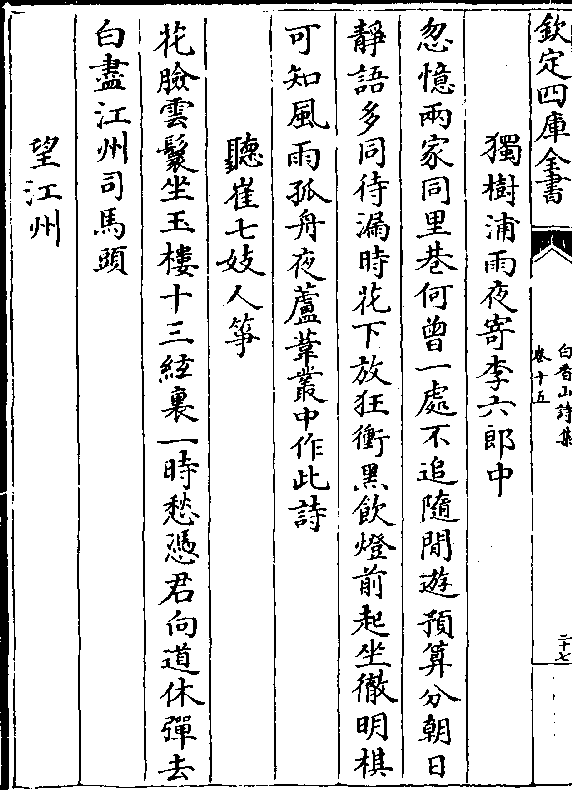 欽定四庫全書
白香山詩集
卷十五
二十七
獨樹浦雨夜寄李六郎中
忽憶兩家同里巷何曾一處不追隨閒遊預算分朝日
靜語多同待漏時花下放狂衝黑飲燈前起坐徹明棋
可知風雨孤舟夜蘆葦叢中作此詩
聽崔七妓人箏
花臉雲鬟坐玉樓十三絃裏一時愁憑君向道休彈去
白盡江州司馬頭
望江州